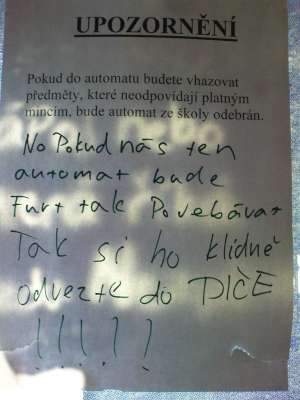 UPOZORNĚNÍ
Pokud do automatu budete vhazovat
předměty, které neodpovídají platným
mincím, bude automat ze školy odebrán.
No Pokud nás ten
automat bude
Furt tak Pojebávat
Tak si ho klidně
odvezte do PIČE
!!!!!